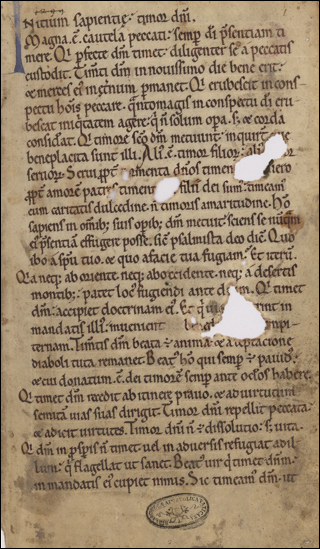 Nitium sapientię. timor dm̄.
Magna. ē. cautela peccati. semp̄ dī p̄sentiam ti
mere. Qī pfecte dm̄ timet. diligenter se a peccatis
custodit. Tim̄ti dm̄ in nouissimo die bene erit.
& merces ei in ętnum p̄manet. Qī erubescit in cons
pectu hoīs peccare. q̄ntomagis in conspectu dī eru
bescat iniq̄tatem agere. qī n̄ solum opa. s; & corda
considerat. Qī timorē sc̄o dm̄ metuunt. inquirunt quę
beneplacita sunt illi. Ali; ē. timor filior; ali
seruor; Serui pp̄t tormenta dn̄os timen
pp̄t amorē patri timen filii dei sum; timeam;
eum caritatis dulcedine. n̄ timoris amaritudine. Ho
sapiens in omib; suis opib; dm̄ metuit. sciens se nūq̄m
ei p̄sentiā effugere posse. sic psalmista deo dic̄. Quo
ibo a spū tuo. & quo a facie tua fugiam. Et iterū.
Qīa neq; ab oriente. neq; ab occidente. neq; a desertis
montib;. patet loc; fugiendi ante dm̄. Qī timet
dm̄. accipiet doctrinam ei;. Et q̄ in
mandatis illi;. inuenient mpi
ternam. Tim̄tis dm̄ beata. ē. anima. & a teptatione
diaboli tuta remanet. Beat; ho qui semp̄ ē pauid;.
& cui donatum. ē. dei timorē semp̄ ante oc̄los habere.
Qī timet dm̄ recedit ab itinere prauo. & ad uirtutum
semitā uias suas dirigit. Timor dm̄ repellit peccata.
& adicit uirtutes. Timor dm̄ n̄ ē dissolutio. s; uita.
Qī dm̄ in p̄spis n̄ timet uel in aduersis refugiat ad il
lum. qī flagellat ut sanet. Beat; uir qī timet dn̄m.
in mandatis ei; cupiet nimis. Sic timeam; dm̄. ut